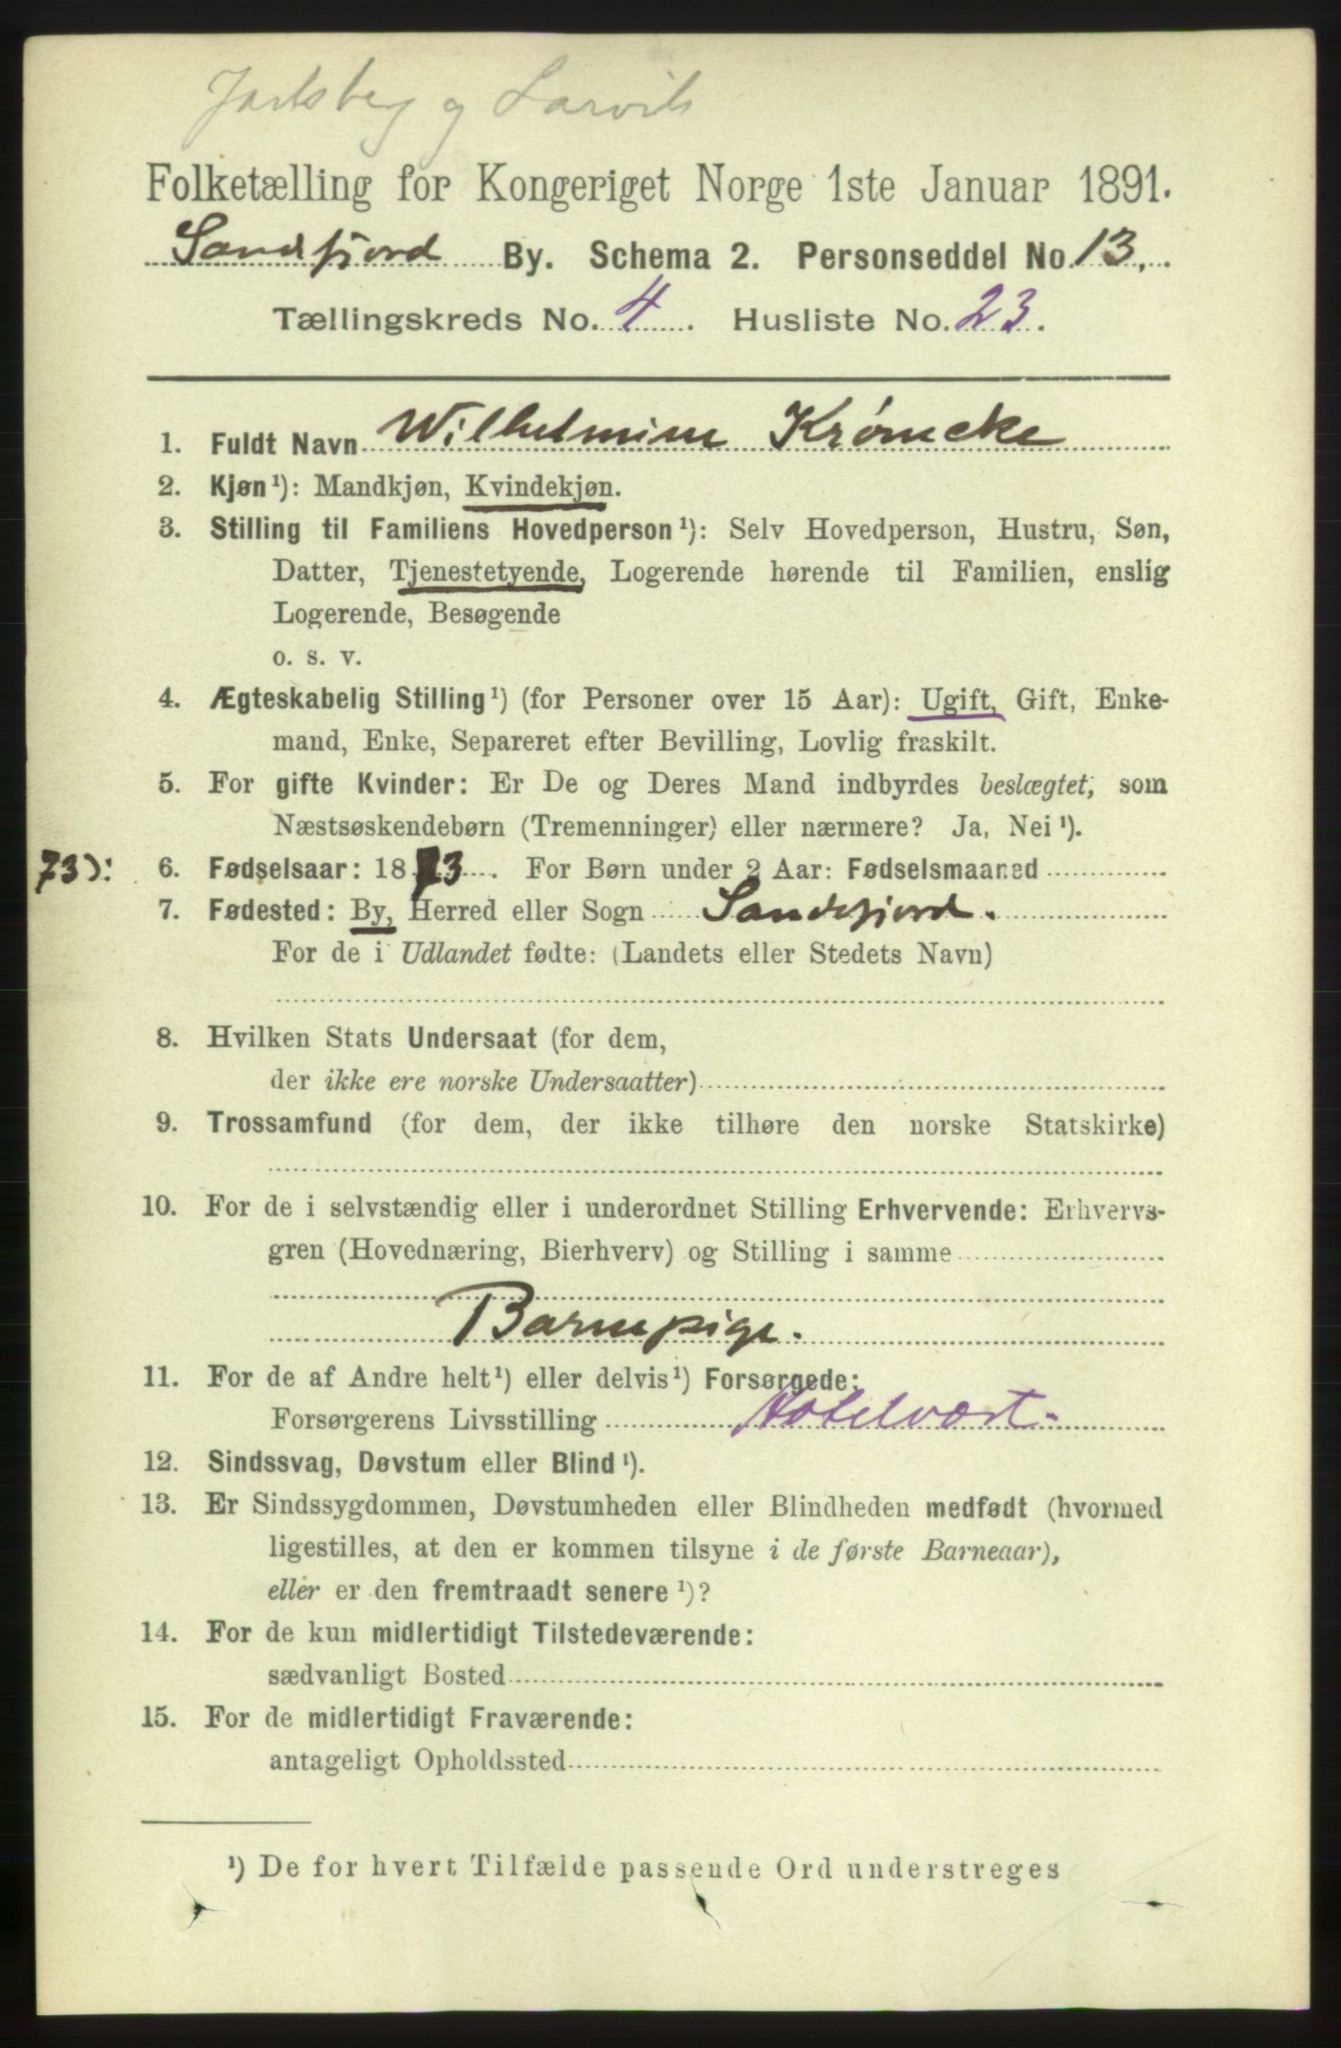 Jarlsberg og Larvik
Folketælling for Kongeriget Norge 1ste Januar 1891.
Sandefjord By. Schema 2. Personseddel No. 13.
Tællingskreds No. 4. Husliste No. 23.
1. Fuldt Navn Wilhelmine Krømcke
2. Kjøn¹): Mandkjøn, Kvindekjøn.
3. Stilling til Familiens Hovedperson¹): Selv Hovedperson, Hustru, Søn,
Datter, Tjenestetyende, Logerende hørende til Familien, enslig
Logerende, Besøgende
o. s. v.
4. Ægteskabelig Stilling¹) (for Personer over 15 Aar): Ugift, Gift, Enke-
mand, Enke, Separeret efter Bevilling, Lovlig fraskilt.
5. For gifte Kvinder: Er De og Deres Mand indbyrdes beslægtet, som
Næstsøskendebørn (Tremenninger) eller nærmere? Ja, Nei¹).
73): 6. Fødselsaar: 1873. For Børn under 2 Aar: Fødselsmaaned
7. Fødested: By, Herred eller Sogn Sandefjord.
For de i Udlandet fødte: (Landets eller Stedets Navn)
8. Hvilken Stats Undersaat (for dem,
der ikke ere norske Undersaatter)
9. Trossamfund (for dem, der ikke tilhøre den norske Statskirke)
10. For de i selvstændig eller i underordnet Stilling Erhvervende: Erhvervs-
gren (Hovednæring, Bierhverv) og Stilling i samme
Barnepige.
11. For de af Andre helt¹) eller delvis¹) Forsørgede:
Forsørgerens Livsstilling Hotelvært.
12. Sindssvag, Døvstum eller Blind¹).
13. Er Sindssygdommen, Døvstumheden eller Blindheden medfødt (hvormed
ligestilles, at den er kommen tilsyne i de første Barneaar),
eller er den fremtraadt senere¹)?
14. For de kun midlertidigt Tilstedeværende:
sædvanligt Bosted
15. For de midlertidigt Fraværende:
antageligt Opholdssted
¹) De for hvert Tilfælde passende Ord understreges